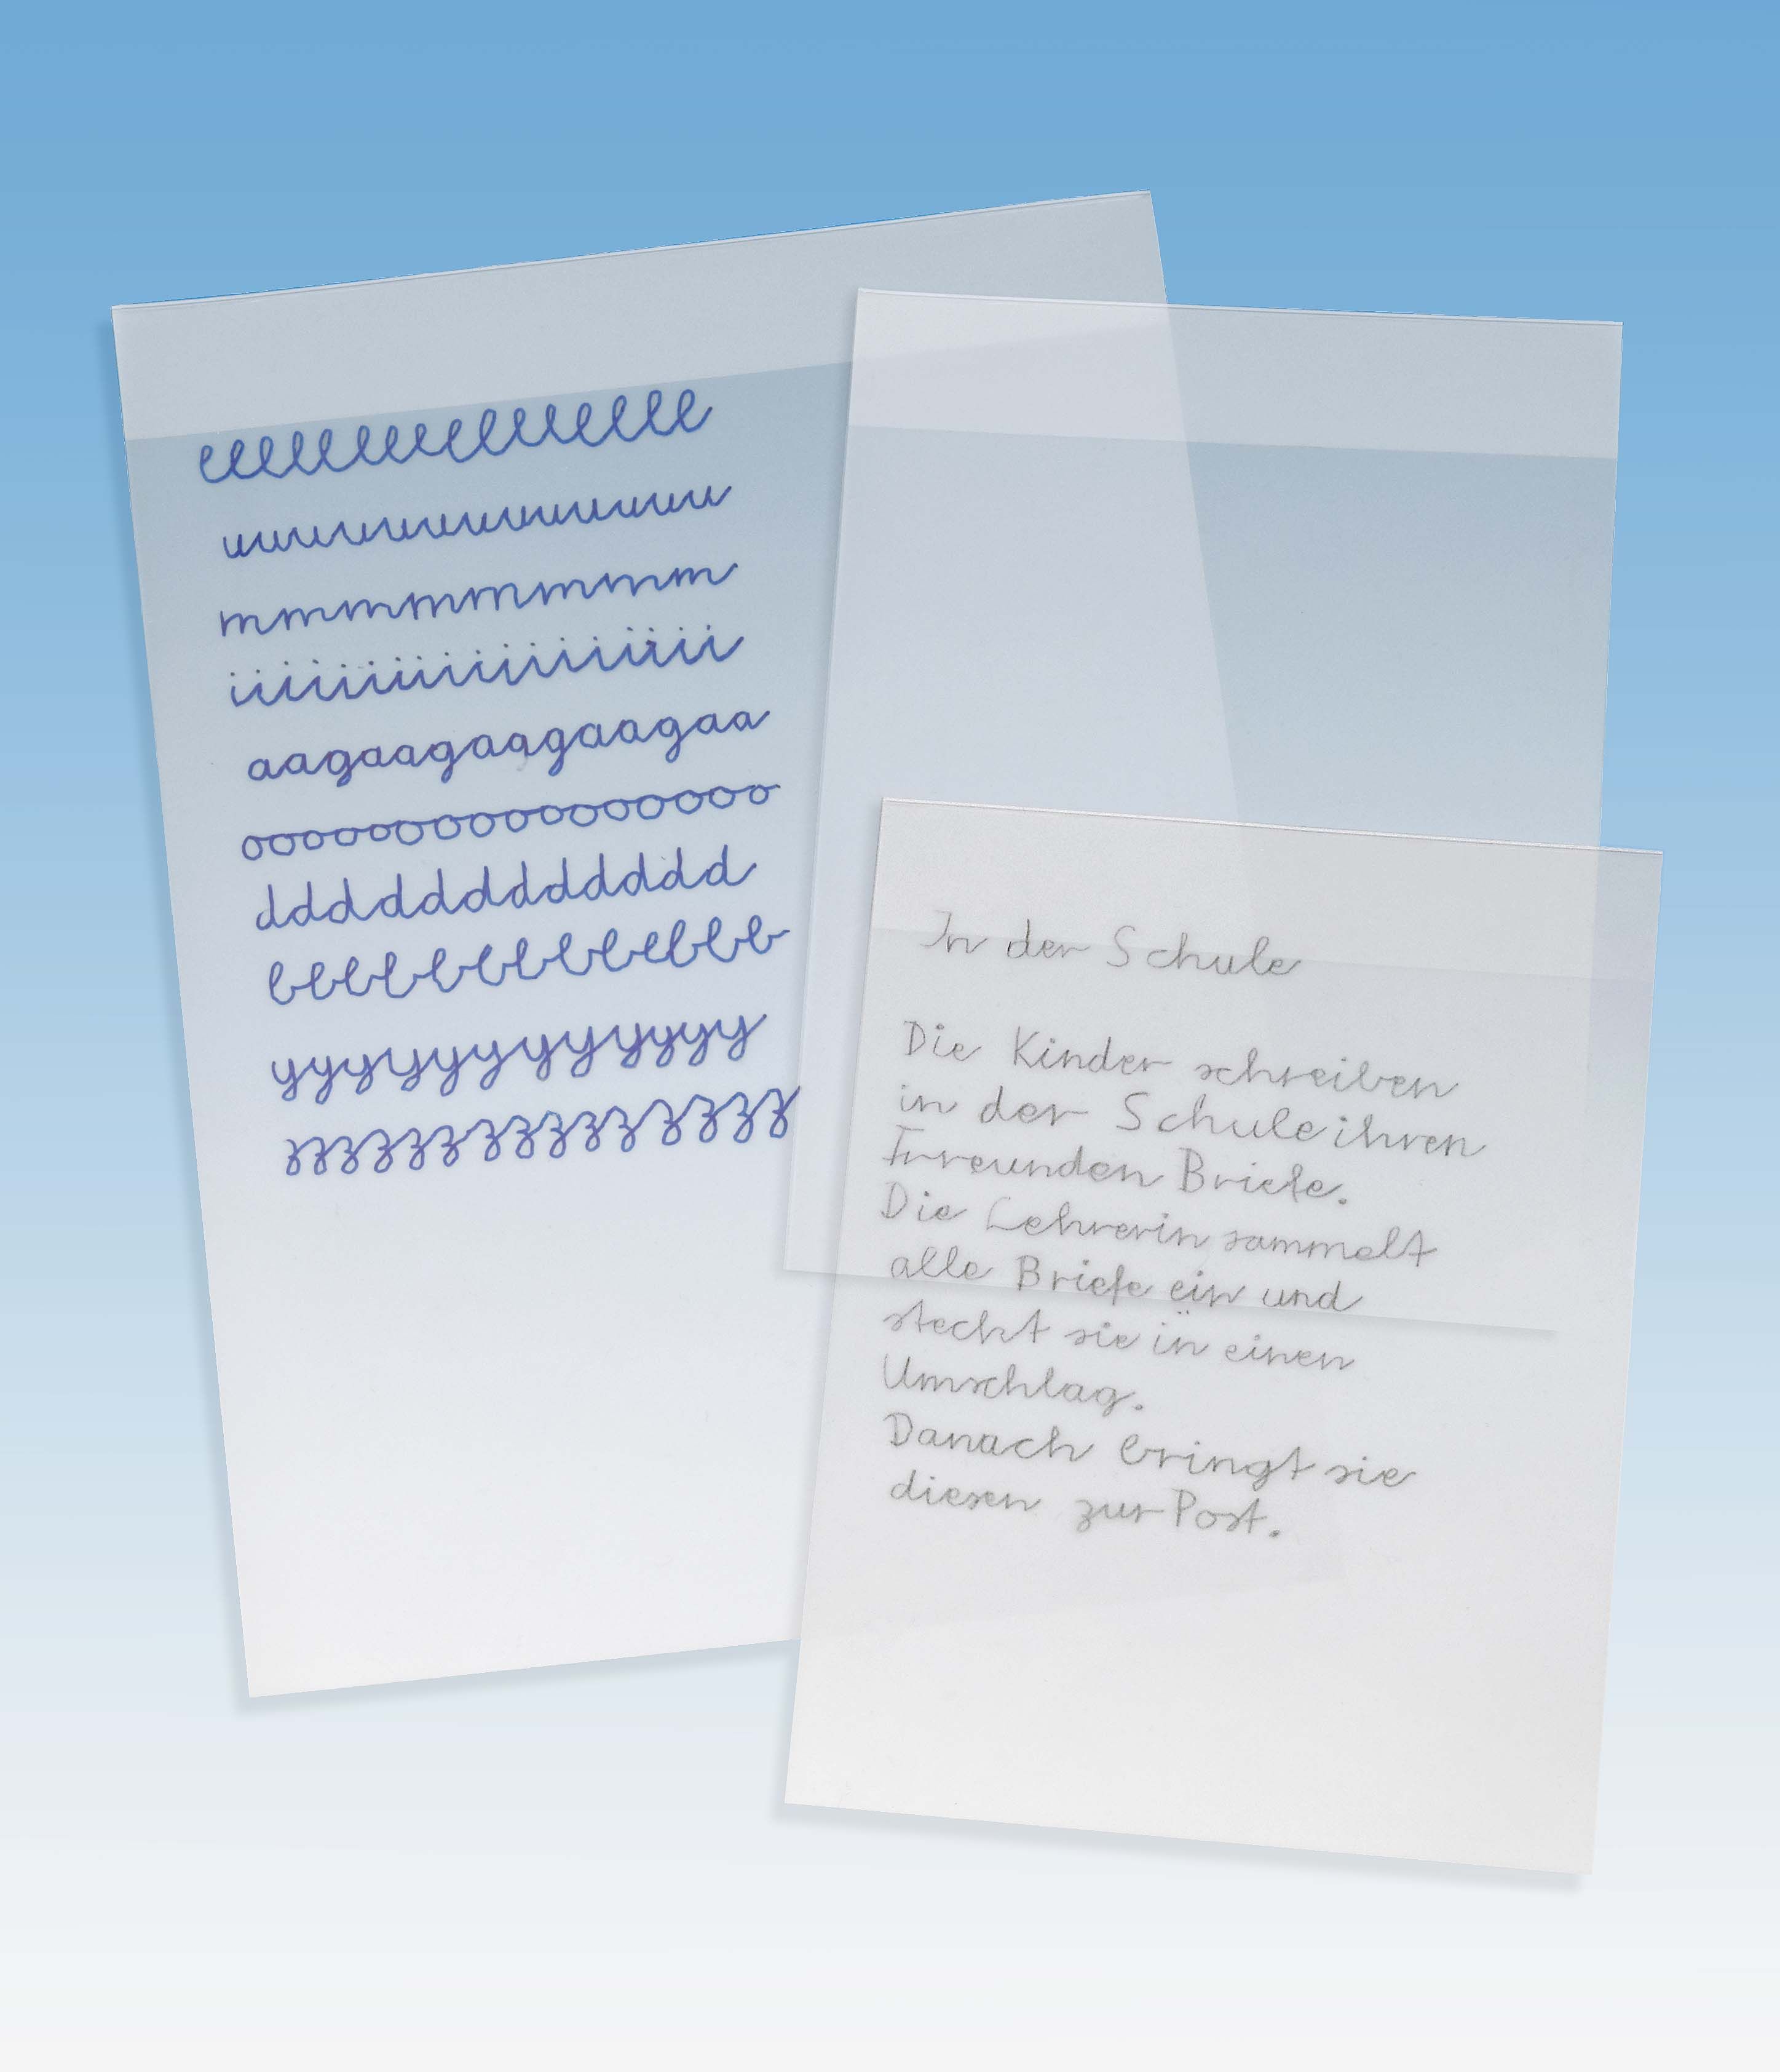 eeeeeeeeeeeeeeeee
uuuuuuuuuuuuuu
mmmmmmmm
iiiiiiiiiiiiiiiiii
aagaagaagaagaa
oooooooooooooooo
dddddddddddd
bbbbbbbbbbbbb
yyyyyyyyyyyy
zzzzzzzzzzzzzzz
In der Schule
Die Kinder schreiben
in der Schule ihren
Freunden Briefe.
Die Lehrerin sammelt
alle Briefe ein und
steckt sie in einen
Umschlag.
Danach bringt sie
diesen zur Post.